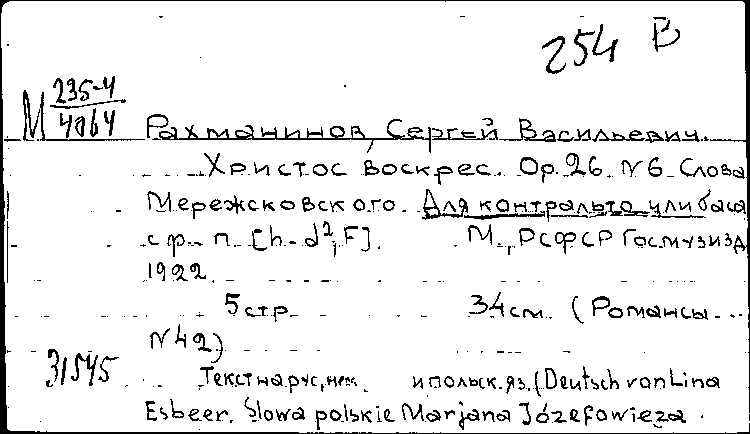 254 В
М 235-4/4064
Рахманинов, Сергей Васильевич.
Христос воскрес. Op. 26 N 6 Слова
Мережсковского. Для контральто или баса
с ф-п. [h-d², F]. М., РСФСР Госмузизд,
1922
5 стр 34 см. (Романсы...
N 42)
31545
Текст на рус, нем. и польск. яз. (Deutsch von Lina
Esbeer. Slowa polskie Marjana Józefowieza.